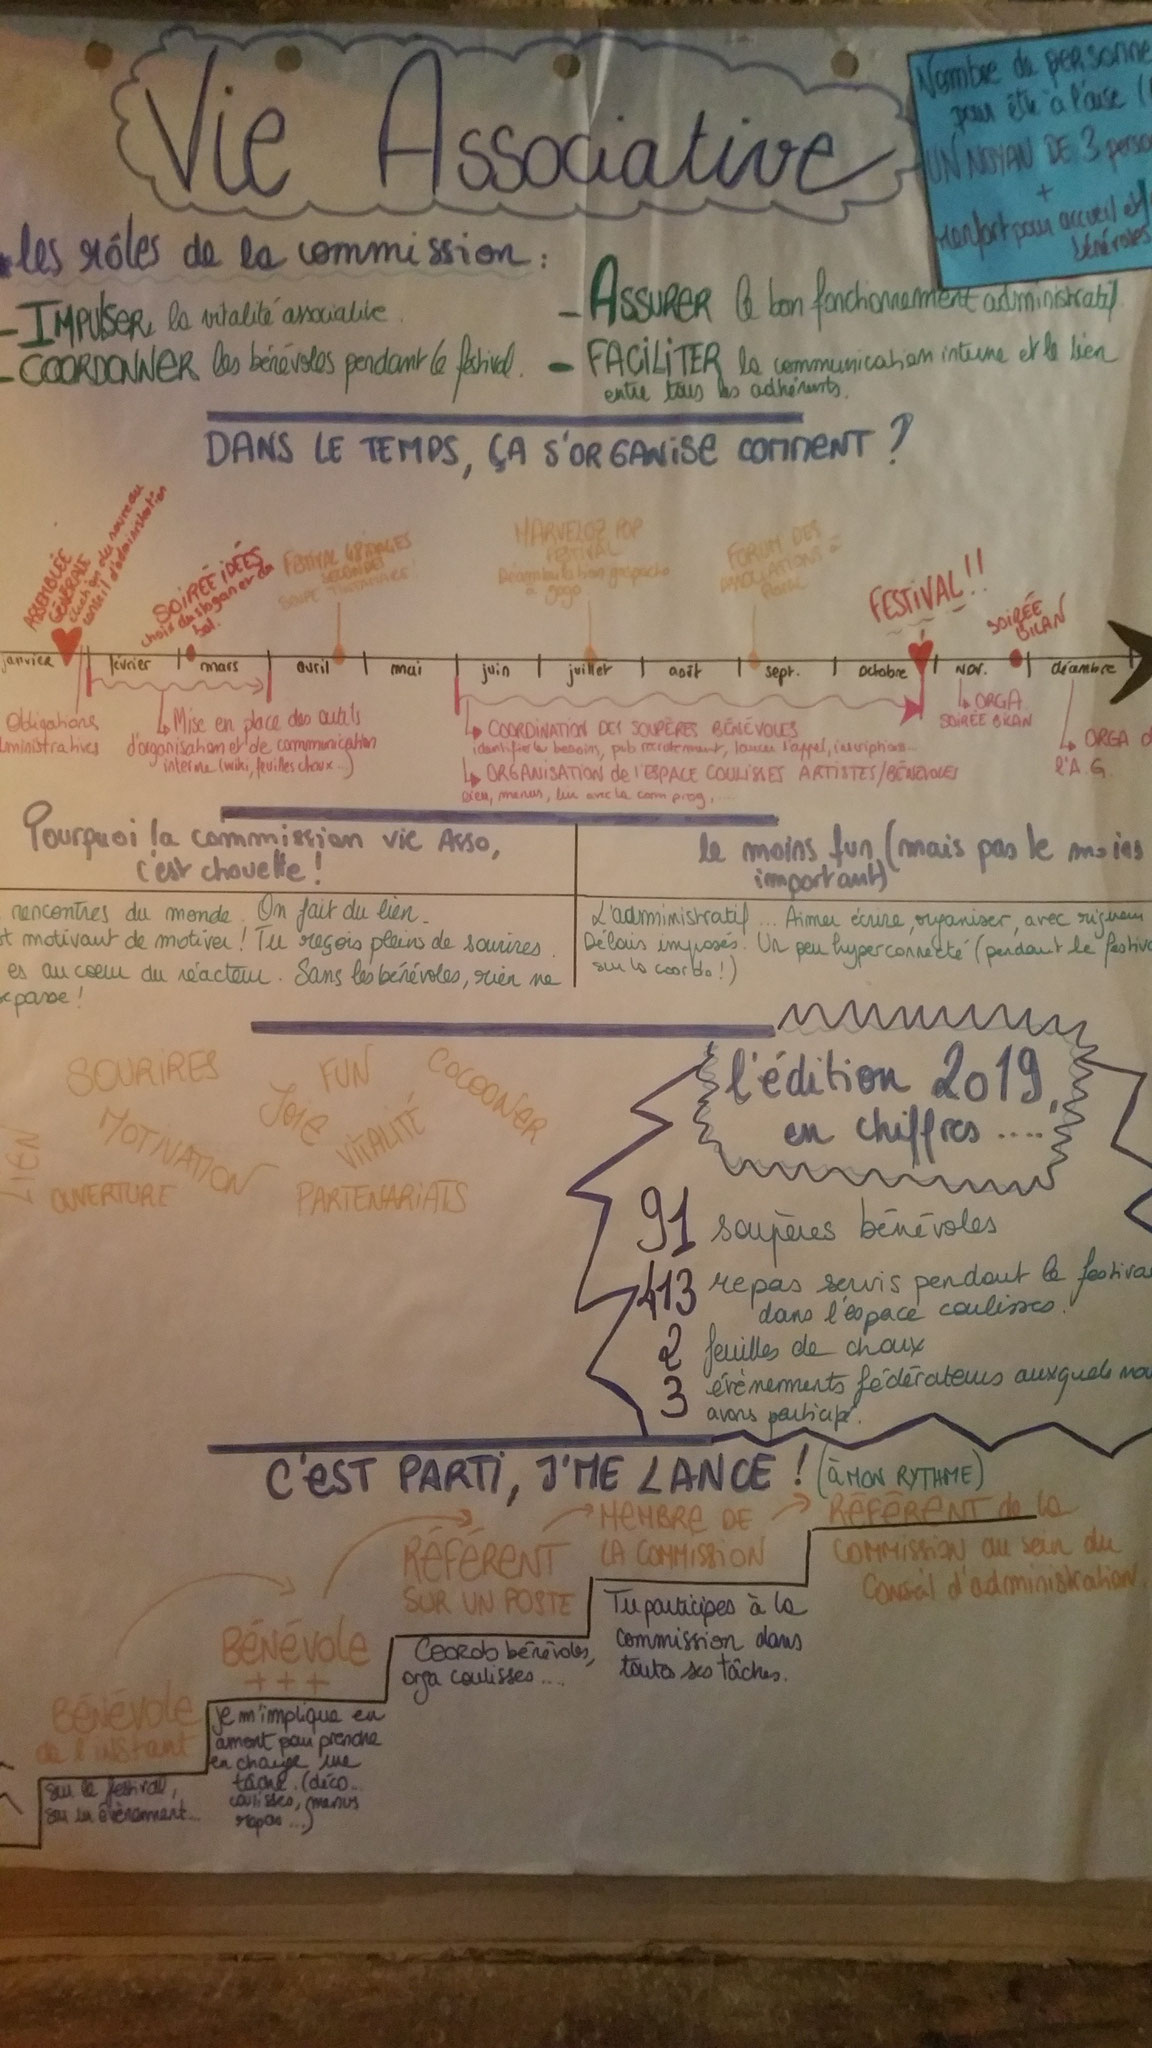 Vie Associative
Nombre de personne
pour être à l'aise
UN NOYAN DE 3 perso
+
renfort pour accueil et
bénévoles
les rôles de la commission :
- IMPULSER la vitalité associative.
- COORDONNER les bénévoles pendant le festival.
- ASSURER le bon fonctionnement administratif.
- FACILITER la communication interne et le lien
entre tous les adhérents.
DANS LE TEMPS, ÇA S'ORGANISE COMMENT ?
ASSEMBLÉE
GÉNÉRALE
élection du nouveau
conseil d'administration
SOIRÉE IDÉES
choix du slogan et du
bal.
FESTIVAL
SOUPE
MARVELOZ POP
FESTIVAL
Déambulation gaspacho
à gogo
FORUM DES
FESTIVAL !!
SOIRÉE
BILAN
janvier février mars avril mai juin juillet août sept. octobre nov. décembre
Obligations
ministratives
Mise en place des outils
d'organisation et de communication
interne (wiki, feuilles choux...)
COORDINATION DES SOUPÈRES BÉNÉVOLES
identifier les besoins, pub recrutement, lancer l'appel, inscriptions...
ORGANISATION de l'ESPACE COULISSES ARTISTES/BÉNÉVOLES
Lieu, menus, lien avec la com prog,....
ORGA
SOIRÉE BILAN
ORGA d
l'A.G.
Pourquoi la commission vie Asso,
c'est chouette !
le moins fun (mais pas le moins
important)
rencontres du monde. On fait du lien.
t motivant de motiver ! Tu reçois pleins de sourires.
es au coeur du réacteur. Sans les bénévoles, rien ne
passe !
L'administratif... Aimer écrire, organiser, avec rigueur
Délais imposés. Un peu hyperconnecté (pendant le festiva
sur la coordo !)
SOURIRES
FUN
COCOONER
JOIE
MOTIVATION
VITALITÉ
LIEN
OUVERTURE
PARTENARIATS
l'édition 2019,
en chiffres ....
91 soupères bénévoles
413 repas servis pendant le festiva
dans l'espace coulisses.
2 feuilles de choux
3 évènements fédérateurs auxquels nou
avons participé.
C'EST PARTI, J'ME LANCE ! (À MON RYTHME)
BÉNÉVOLE
de l'instant
sur le festival,
sur un évènement...
BÉNÉVOLE
+++
je m'implique en
amont pour prendre
en charge une
tâche. (déco...
coulisses, menus
repas ...)
RÉFÉRENT
SUR UN POSTE
Coordo bénévoles,
orga coulisses...
MEMBRE DE
LA COMMISSION
Tu participes à la
commission dans
toutes ses tâches.
RÉFÉRENT de la
COMMISSION au sein du
Conseil d'administration.